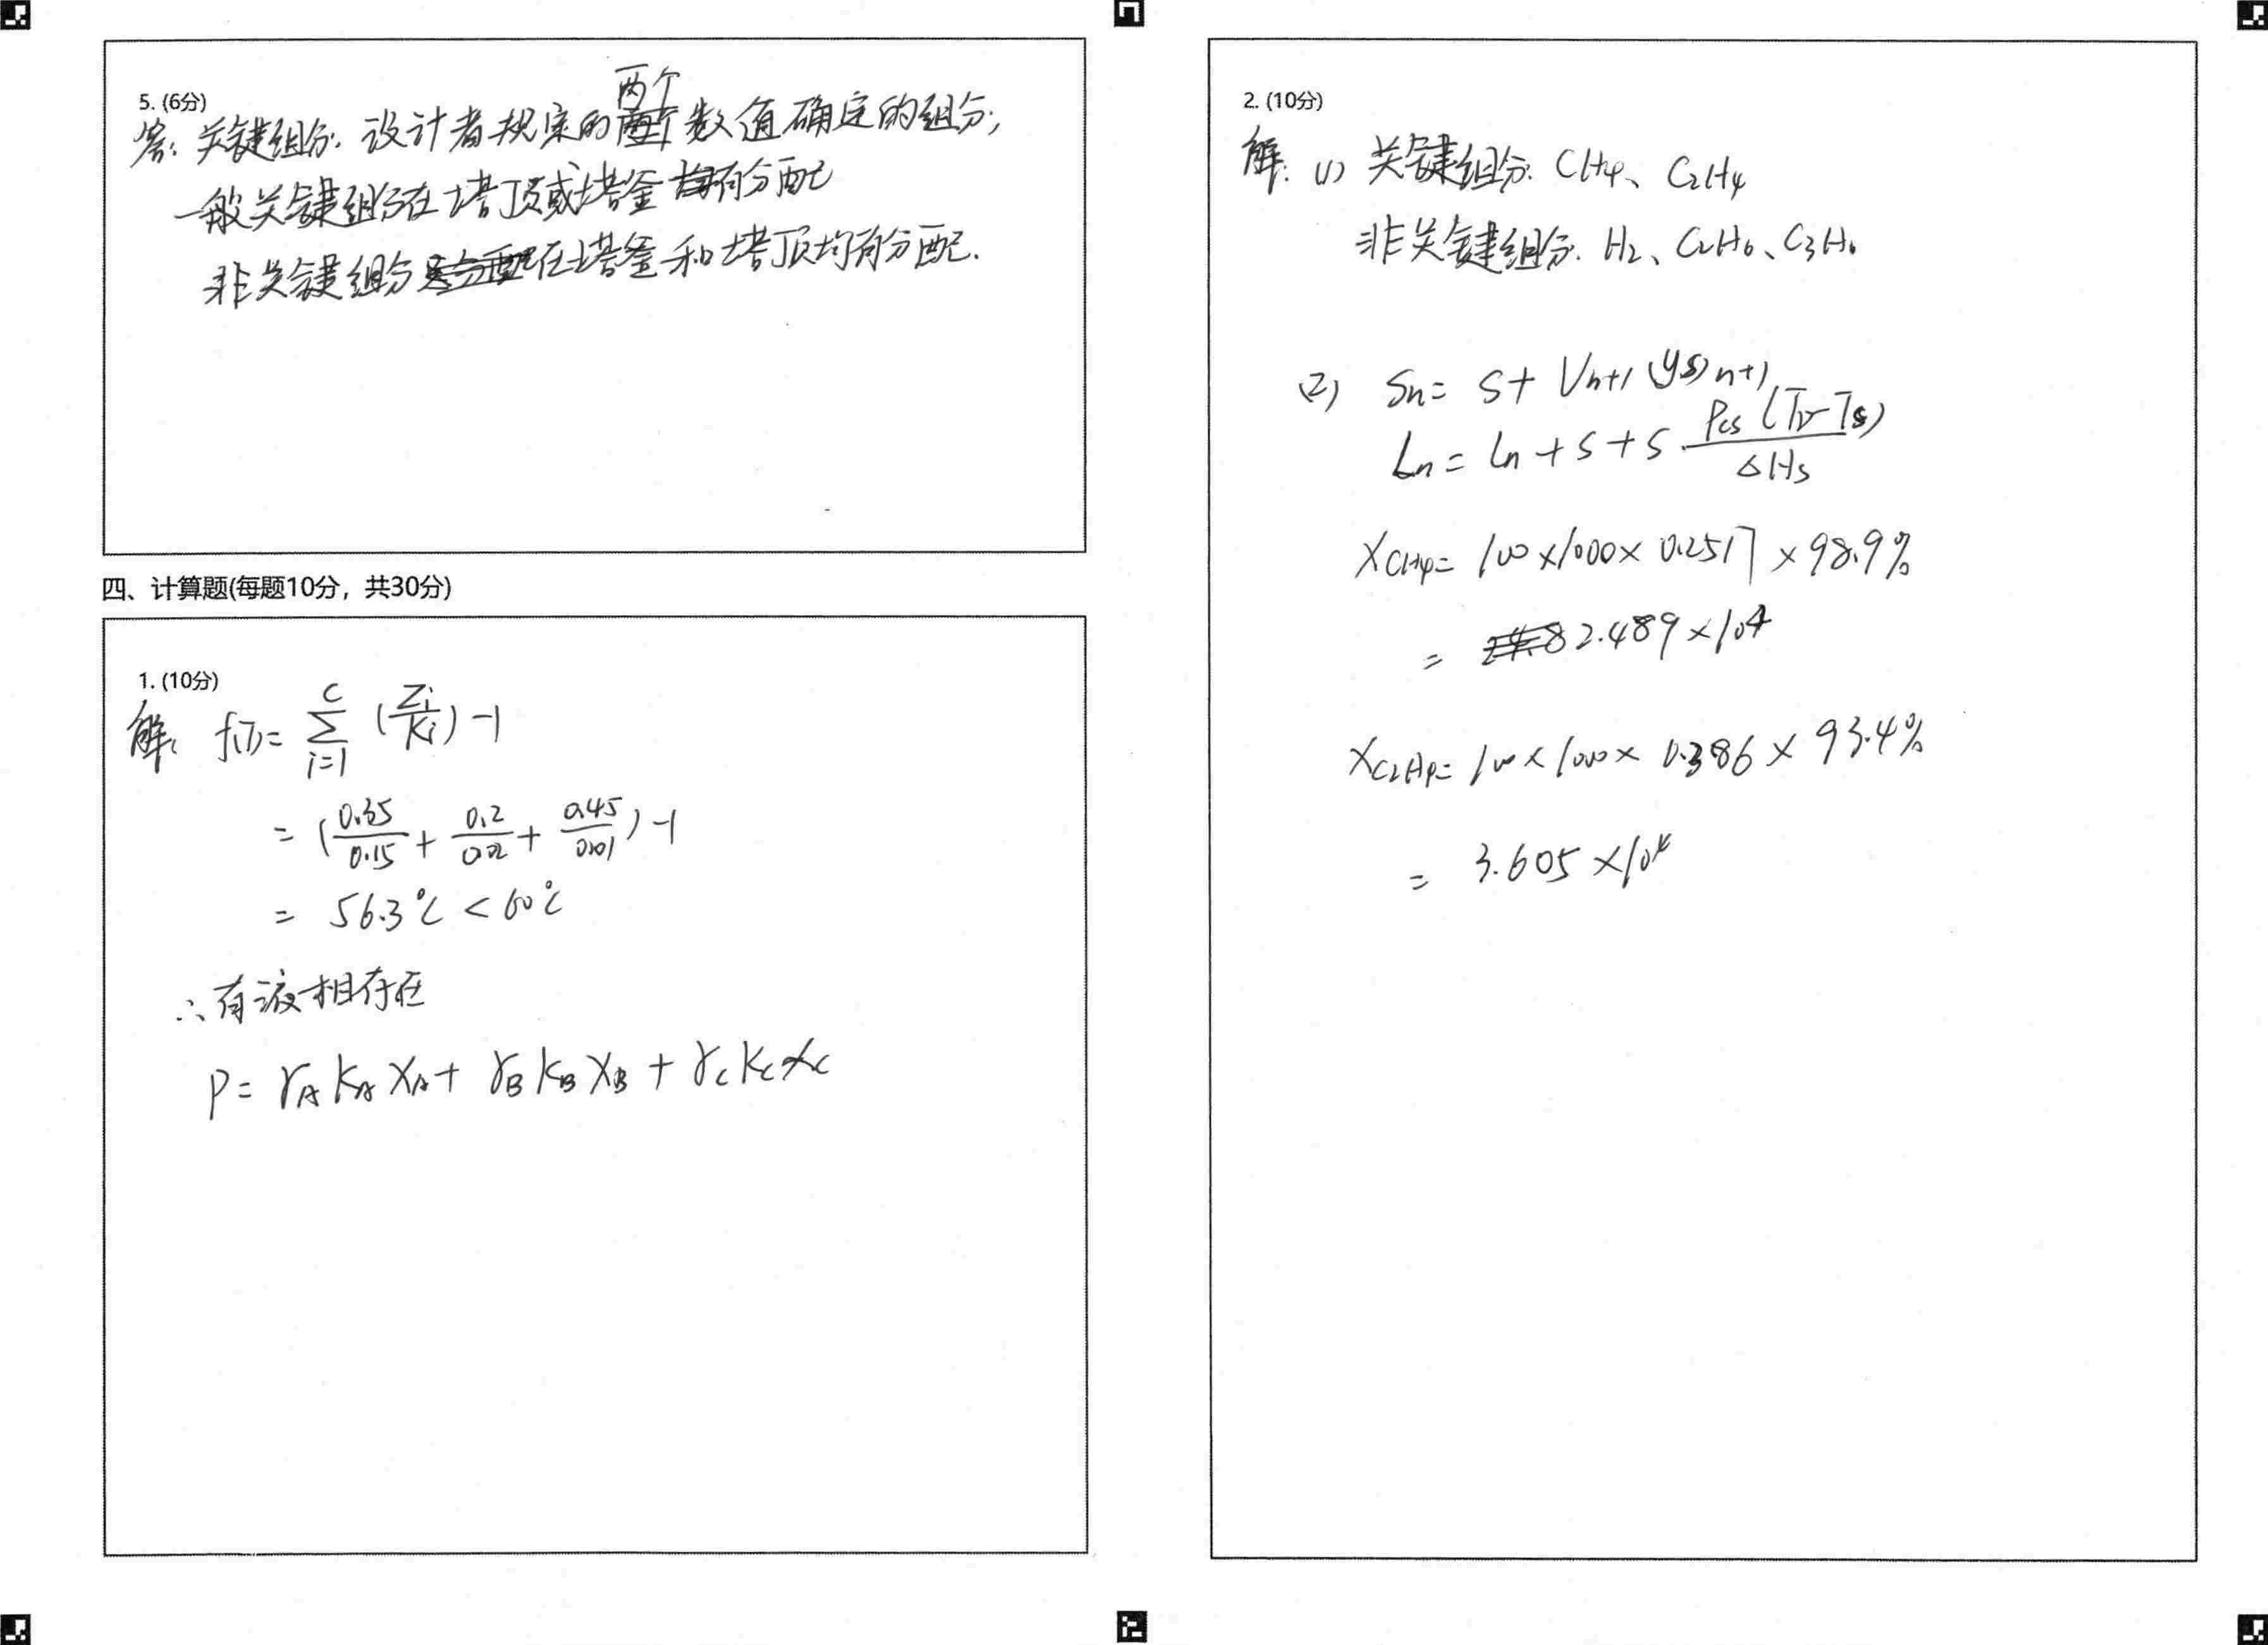 5. (6分)
两个
答: 关键组分: 设计者规定的数值确定的组分,
一般关键组分在塔顶或塔釜有分配
非关键组分在塔釜和塔顶均有分配.
四、计算题(每题10分，共30分)
1. (10分)
解: f(T)= Σ_{i=1}^{C} (Zi/Ki) -1
= (0.35/0.15 + 0.2/0.02 + 0.45/0.01) -1
= 56.3℃ < 60℃
∴ 有液相存在
P= γA KA XA + γB KB XB + γC KC XC
2. (10分)
解: (1) 关键组分: CH4、C2H4
非关键组分: H2、C2H6、C3H6
(2) Sn= S+ Vn+1 (yS)n+1
Ln = Ln + S + S · Pcs (Tv-Ts)/ΔHs
XCH4= 100×1000× 0.2517 ×98.9%
= 2.489 ×10^4
XC2H4= 100×1000× 0.386 × 93.4%
= 3.605 ×10^4